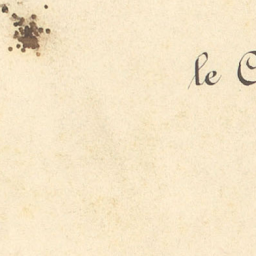 le C